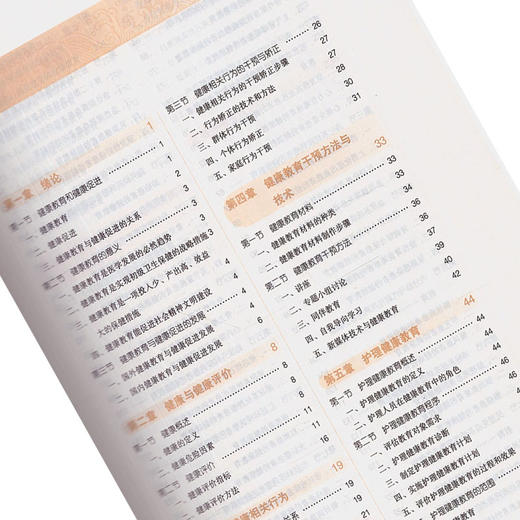 第一章 绪论 1
第一节 健康教育和健康促进 1
一、健康教育 1
二、健康促进 2
三、健康教育与健康促进的关系 3
第二节 健康教育的意义 3
一、健康教育是医学发展的必然趋势 3
二、健康教育是实现初级卫生保健的战略措施 3
三、健康教育是一项投入少、产出高、效益
大的保健措施 4
四、健康教育能促进社会精神文明建设 4
第三节 健康教育与健康促进的发展 4
一、国外健康教育与健康促进发展 4
二、国内健康教育与健康促进发展 6
第二章 健康与健康评价 8
第一节 健康概述 8
一、健康的定义 8
二、健康危险因素 11
第二节 健康评价 16
一、健康评价指标 16
二、健康评价方法
健康相关行为 19
19
21
第三节 健康相关行为的干预与矫正 26
一、健康相关行为的干预矫正步骤 27
二、行为矫正的技术和方法 27
三、群体行为干预 28
四、个体行为矫正 30
五、家庭行为干预 31
第四章 健康教育干预方法与
技术 33
第一节 健康教育材料 33
一、健康教育材料的种类 34
二、健康教育材料制作步骤 36
第二节 健康教育干预方法 37
一、讲座 37
二、专题小组讨论 39
三、同伴教育 40
四、自我导向学习 42
五、新媒体技术与健康教育
第五章 护理健康教育 44
第一节 护理健康教育概述 44
一、护理健康教育的定义 44
二、护理人员在健康教育中的角色 46
第二节 护理健康教育程序
一、评估教育对象需求
二、护理健康教育诊断
三、制定护理健康教育计划
四、实施护理健康教育计划
五、评价护理健康教育的过程和效果
第三节 护理健康教育的范围